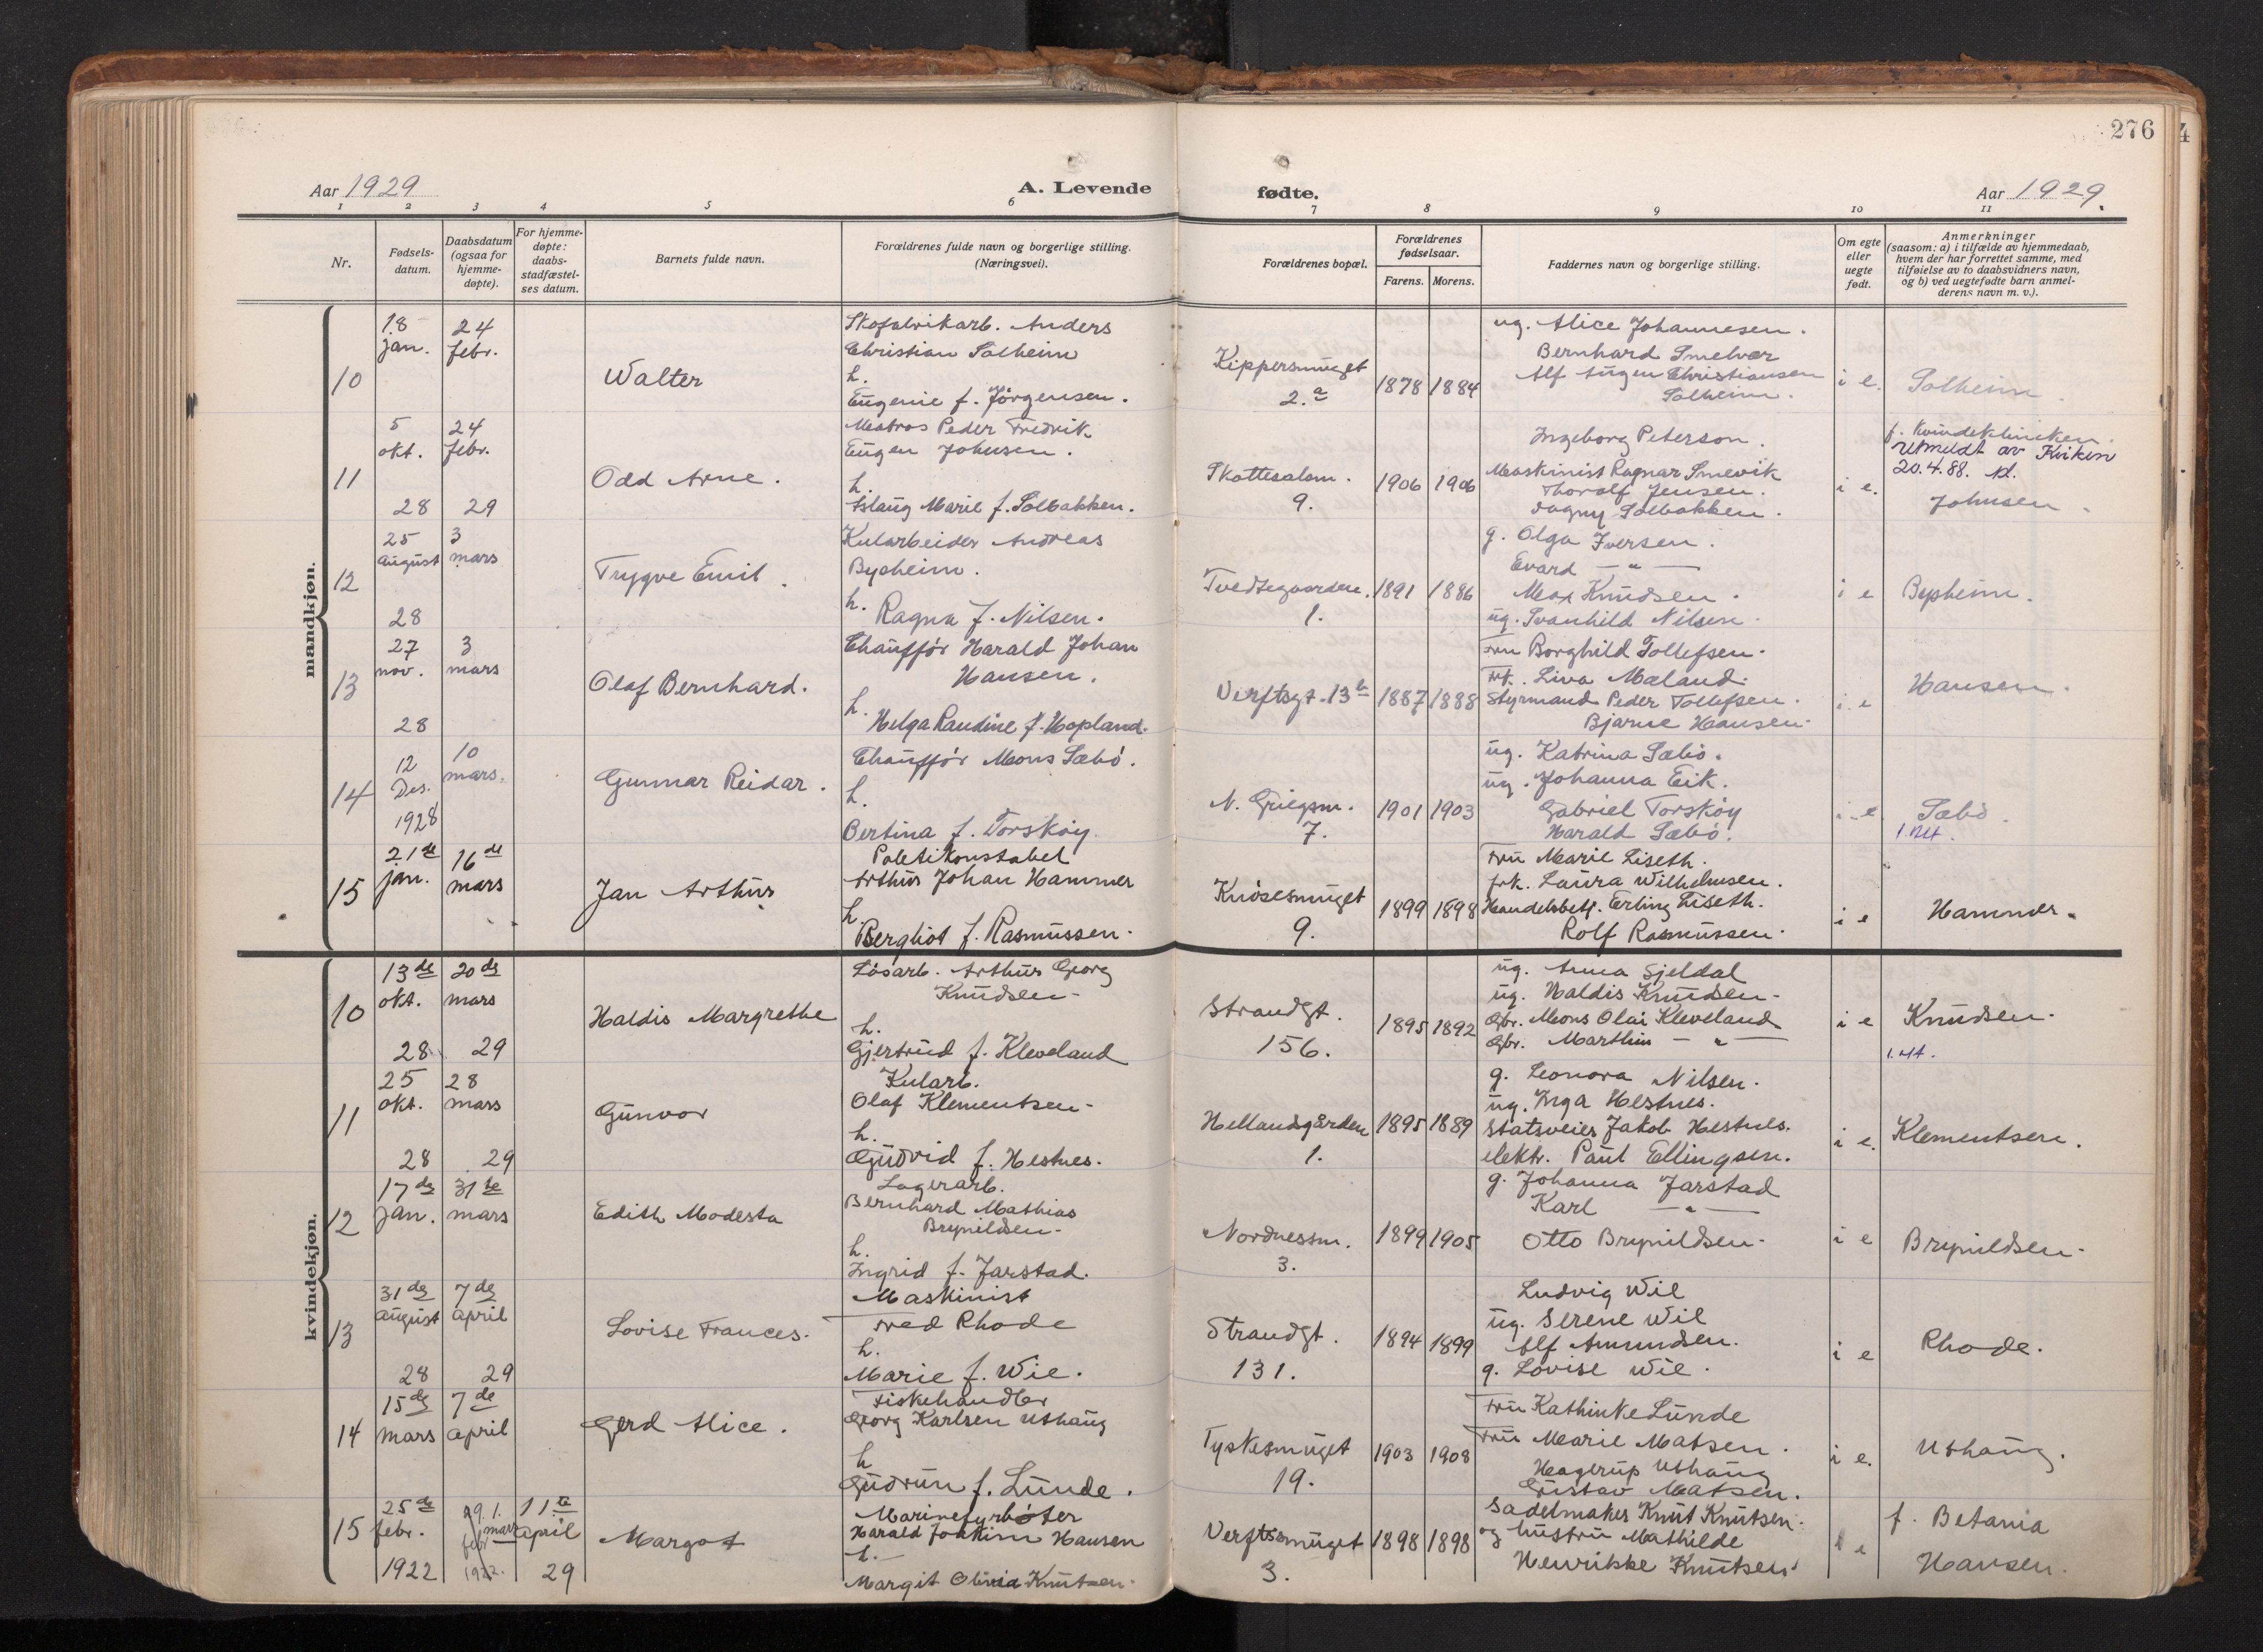 276
Aar 1929
A. Levende
fødte.
Aar 1929.
1 2 3 4 5 6 7 8 9 10 11
Nr.
Fødsels-
datum.
Daabsdatum
(ogsaa for
hjemme-
døpte).
For hjemme-
døpte:
daabs-
stadfæstel-
ses datum.
Barnets fulde navn.
Forældrenes fulde navn og borgerlige stilling.
(Næringsvei).
Forældrenes bopæl.
Forældrenes
fødselsaar.
Farens. Morens.
Faddernes navn og borgerlige stilling.
Om egte
eller
uegte
født.
Anmerkninger
(saasom: a) i tilfælde av hjemmedaab,
hvem der har forrettet samme, med
tilføielse av to daabsvidners navn,
og b) ved uegtefødte barn anmel-
derens navn m. v.).
mandkjøn.
10
18
jan.
24
febr.
Walter
Skofabrikarb. Anders
Christian Solheim
h.
Eugenie f. Jörgensen.
Kippersmuget
2.a
1878 1884
ug. Alice Johannesen.
Bernhard Smelvær
Alf Eugen Christiansen
Solheim.
i e.
Solheim.
11
5
okt.
28
24
febr.
29
Odd Arne.
Matros Peder Fredrik
Eugen Johnsen.
h.
Aslaug Marie f. Solbakken.
Skottesalm.
9.
1906 1906
Ingeborg Peterson.
Maskinist Ragnar Smevik
Thoralf Jensen.
Dagny Solbakken.
i e.
f. Kvindeklinikken.
Utmeldt av Kirken
20.4.88.
Johnsen.
12
25
august
28
3
mars
Trygve Emil.
Kularbeider Andreas
Bysheim.
h. Ragna f. Nilsen.
Tvedtegaarden.
1.
1891 1886
g. Olga Iversen.
Evard — " —
Max Knudsen.
ug. Svanhild Nilsen.
i e
Bysheim.
13
27
nov.
28
3
mars
Olaf Bernhard.
Chauffór Harald Johan
Hansen.
h.
Helga Raudine f. Hopland.
Verftsgt. 13b
1887 1888
Fru Borghild Tollefsen.
Frk. Liva Mæland.
Styrmand Peder Tollefsen.
Bjarne Hansen.
i e
Hansen.
14
12
Des.
1928
10
mars.
Gunnar Reidar.
Chauffór Mons Sæbó.
h.
Bertina f. Torskóy.
N. Griegsm.
7.
1901 1903
ug. Katrina Sæbó.
ug. Johanna Eik.
Gabriel Torskóy
Harald Sæbó.
i e
Sæbó.
15
21de
jan.
16de
mars
Jan Arthur
Politikonstabel
Arthur Johan Hammer
h.
Bergliot f. Rasmussen.
Knósesmuget
9.
1899 1898
Fru Marie Liseth.
frk. Laura Wilhelmsen.
Handelsbetj. Erling Liseth.
Rolf Rasmussen.
i e
Hammer.
kvindekjøn.
10
13de
okt.
28
20de
mars
29
Haldis Margrethe
Lósarb. Arthur Georg
Knudsen
h.
Gjertrud f. Kleveland
Strandgt.
156.
1895 1892
ug. Anna Gjeldal
ug. Haldis Knudsen
Gbr. Mons Olai Kleveland
Gbr. Marthin — " —
i e
Knudsen.
11
25
okt.
28
28
mars
29
Gunvor
Kularb.
Olaf Klementsen
h.
Gudrid f. Hestnes.
Hellandsgården
1.
1895 1889
g. Leonora Nilsen.
ug. Inga Hestnes.
Statsveier Jakob Hestnes.
elektr. Paul Ellingsen.
i e.
Klementsen.
12
17de
jan.
31te
mars
Edith Modesta
Lagerarb.
Bernhard Mathias
Brynildsen
h.
Ingrid f. Jarstad.
Nordnessm.
3.
1899 1905
g. Johanna Jarstad
Karl — " —
Otto Brynildsen
i e
Brynildsen
13
31de
august
28
7de
april
29
Lovise Frances.
Maskinist
Fred Rhode
h.
Marie f. Wie.
Strandgt.
131.
1894 1899
Ludvig Wil
ug. Serene Wil
Alf Amundsen.
g. Lovise Wie.
i e
Rhode.
14
15de
mars
7de
april
Gerd Alice.
Fiskehandler
Georg Karlsen Uthaug
h
Gudrun f. Lunde.
Tyskesmuget
19.
1903 1908
Fru Kathinke Lunde
Fru Marie Matsen.
Hagerup Uthaug
Gustav Matsen.
i e.
Uthaug.
15
25de
febr.
1922
11te
april
29
Margot
Marinefyrbóter
Harald Joakim Hansen
h.
Margit Olivia Knutsen.
Verftssmuget
3.
1898 1898
Sadelmaker Knut Knutsen
og hustru Mathilde
Henrikke Knutsen
i e
f. Betania
Hansen.